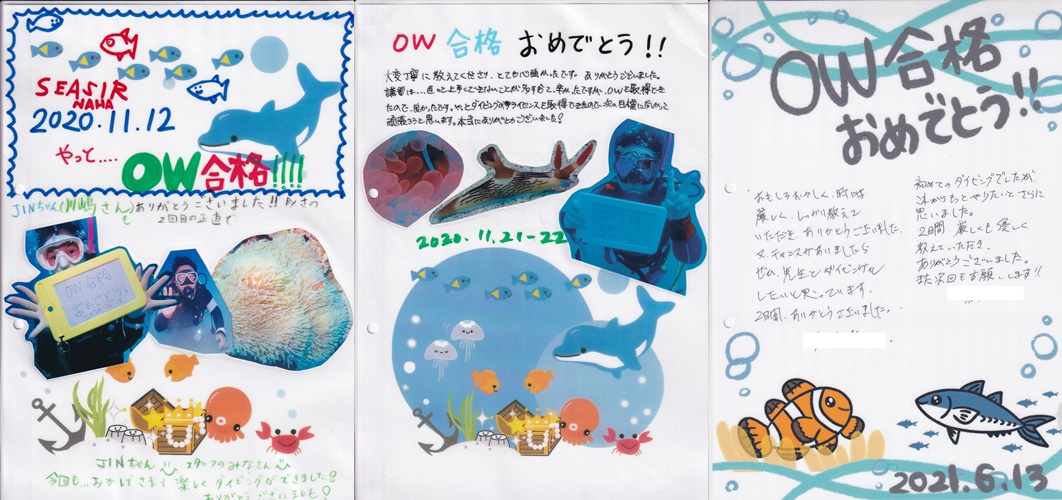 SEASIR
NAHA
2020.11.12
やっと....
OW合格!!!!
JINちゃん(川嶋さん)ありがとうございました!!
も
2回目の正直で
OW合格
おめでとう
JINちゃん スタッフのみなさん
今回も...おかげさまで楽しくダイビングができました!
ありがとうございました!
OW 合格 おめでとう!!
大変丁寧に教えてくださり、とても心強かったです。ありがとうございました。
講習は....
ので、良かったです。やっとダイビングのライセンスを取得できたので、次の目標に向かって
頑張ろうと思います。本当にありがとうございました!
2020.11.21-22
OW合格
おめでとう!!
おもしろおかしく、時には
厳しく、しっかり教えて
いただき、ありがとうございました。
又、チャンスがありましたら
ぜひ、先生とダイビングが
したいと思っています。
2日間、ありがとうございました。
初めてのダイビングでしたが
これからもっとやりたいとさらに
思いました。
2日間 厳しくも優しく
教えていただき、
ありがとうございました。
また次回もお願いします!!
2021.6.13